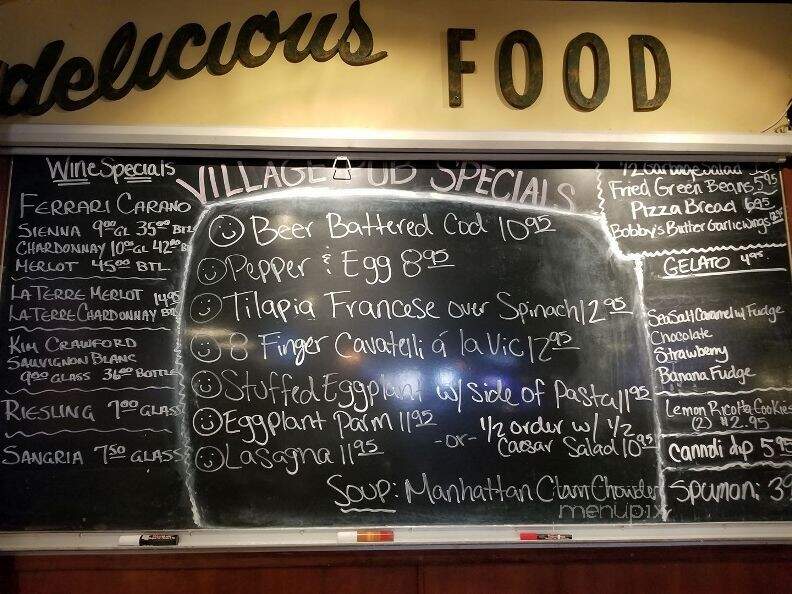 delicious FOOD
Wine Specials
FERRARI CARANO
SIENNA 9⁰⁰ GL 35⁰⁰ BTL
CHARDONNAY 10⁰⁰ GL 42⁰⁰ B
MERLOT 45⁰⁰ BTL
LA TERRE MERLOT 14⁹⁵
LA TERRE CHARDONNAY BTL
KIM CRAWFORD
SAUVIGNON BLANC
9⁰⁰ GLASS 36⁰⁰ BOTTLE
RIESLING 7⁰⁰ GLASS
SANGRIA 7⁵⁰ GLASS
VILLAGE PUB SPECIALS
Beer Battered Cod 10⁹⁵
Pepper & Egg 8⁹⁵
Tilapia Francese over Spinach 12⁹⁵
8 Finger Cavatelli á la Vic 12⁹⁵
Stuffed Eggplant w/ Side of Pasta 11⁹⁵
Eggplant Parm 11⁹⁵
Lasagna 11⁹⁵
-or- 1/2 order w/ 1/2
Caesar Salad 10⁹⁵
Soup: Manhattan Clam Chowder
1/2 Garbage Salad 5⁹⁵
Fried Green Beans 5⁹⁵
Pizza Bread 6⁹⁵
Bobby's Butter Garlic Wings
GELATO 4⁹⁵
Sea Salt Caramel w/ Fudge
Chocolate
Strawberry
Banana Fudge
Lemon Ricotta Cookies
(2) $2.95
Cannoli dip 5⁹⁵
Spumoni 3⁹
menupix